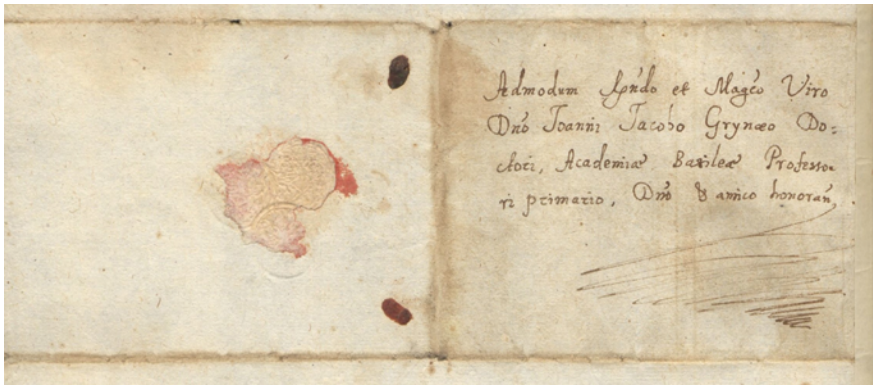 Admodum Rṇdo et Magco Viro
Dno Joanni Jacobo Grynæo Do:
ctori, Academiæ Basileæ Professo-
ri primario, Dno & amico honoran,